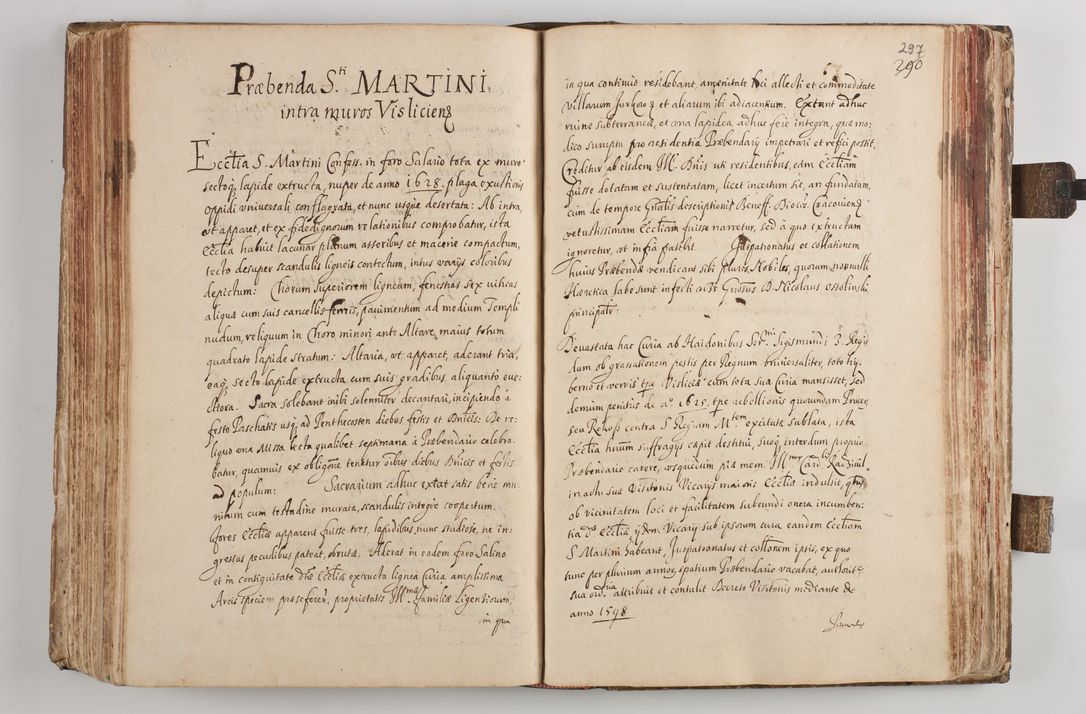 Præbenda S.ti MARTINI
intra muros Visliciens
Eccl̃ia S. Martini Confess. in foro Salario tota ex muro
sectoq; lapide extructa, nuper de anno 1628. plaga exustionis
oppidi vniversali conflagrata, et nunc usque desertata: Ab intra,
ut apparet, et ex fidedignorum relationibus comprobatur, ista
Eccl̃ia habuit lacunar planum asseribus et macerie compactum,
tecto desuper scandulis ligneis contectum, intus varijs coloribus
depictum: Chorum superiorem ligneum, fenestras sex vitreas
aliquas cum suis cancellis ferreis, pavimentum ad medium Templi
nudum, reliquum in Choro minori ante Altare maius totum
quadrato lapide stratum: Altaria, ut apparet, aderant tria,
eaq; secto lapide extructa cum suis gradibus aliquanto eve-
ctiora. Sacra solebant inibi solenniter decantari, incipiendo à
festo Paschatis usq; ad Penthecosten diebus festis et Dnicis: De re-
liquo una Missa lecta qualibet septimana à Præbendario celebra-
batur, quamuis ex oblig̃one tenetur oĩbus diebus Dnicis et festis
ad populum: Sacrarium adhuc extat satis bene mu-
nitum cum testudine murata, scandulis integre coopertum.
fores Eccl̃iæ apparent fuisse tres, lapidibus nunc studiose, ne in-
gressus pecudibus pateat, obrutæ. Aderat in eodem foro Salino
et in contiguitate dictæ Eccl̃iæ extructa lignea Curia amplissima
Arcis speciem præseferens, proprietatis Ill.mæ familiæ Ligenziorum,
in qua
297
290
in qua continuo residebant, amœnitate loci allecti et commoditate
villarum suarum et aliarum ibi adiacentium. Extant adhuc
ruinæ subterraneæ, et una lapidea adhuc fere integra, quæ mo-
dico sumptu pro residentia Præbendarij impetrari et refici possit,
Creditur ab eisdem Ill. Dñis uti residentibus, eam Eccl̃iam
fuisse dotatam et sustentatam, licet incertum sit, an fundatam,
cum de tempore Gñalis descriptionis Beneff. Diœces. Cracouiens
vetustissimam Eccl̃iam fuisse narretur, sed à quo extructam
ignoretur, ut infra patebit. Juspatronatus et collationem
huius Præbendæ vendicant sibi plures Nobiles, quorum nonnulli
Hæretica labe sunt infecti ut Gñosus D. Nicolaus Ossolinski
principalr.
Devastata hac Curia ab Haidonibus Ser.mi Sigismundi 3. Regis
dum ob grassationem pestis per Regnum vniversaliter, toto hy-
berno et verris tpe Visliciæ cum tota sua Curia mansisset, sed
demum penitus de ao. 1625. tpe rebellionis quorundam Procer
seu Rokoss contra S. Regiam M.tem excitatæ sublata, ista
Eccl̃ia huiusm suffragijs cæpit destitui, suoq; interdum proprio
Præbendario carere, usquedum piæ mem. Ill.mus Card.lis Radziuil
in actu suæ Visit̃onis Vicarijs maioris Eccl̃iæ indulsit, qtus
ob vicinitatem loci et facilitatem subeundi onera incumben-
tia d.æ Eccl̃iæ, ijdem Vicarij sub ipsorum cura eandem Eccl̃iam
S. Martini habeant, Juspatronatus et coll̃onem ipsis, ex quo
tunc per plurium annor. spatium Præbendario vacabat, authorit̃e
sua ord.ria attribuit et contulit Decreto Visit̃onis mediante de
anno 1598